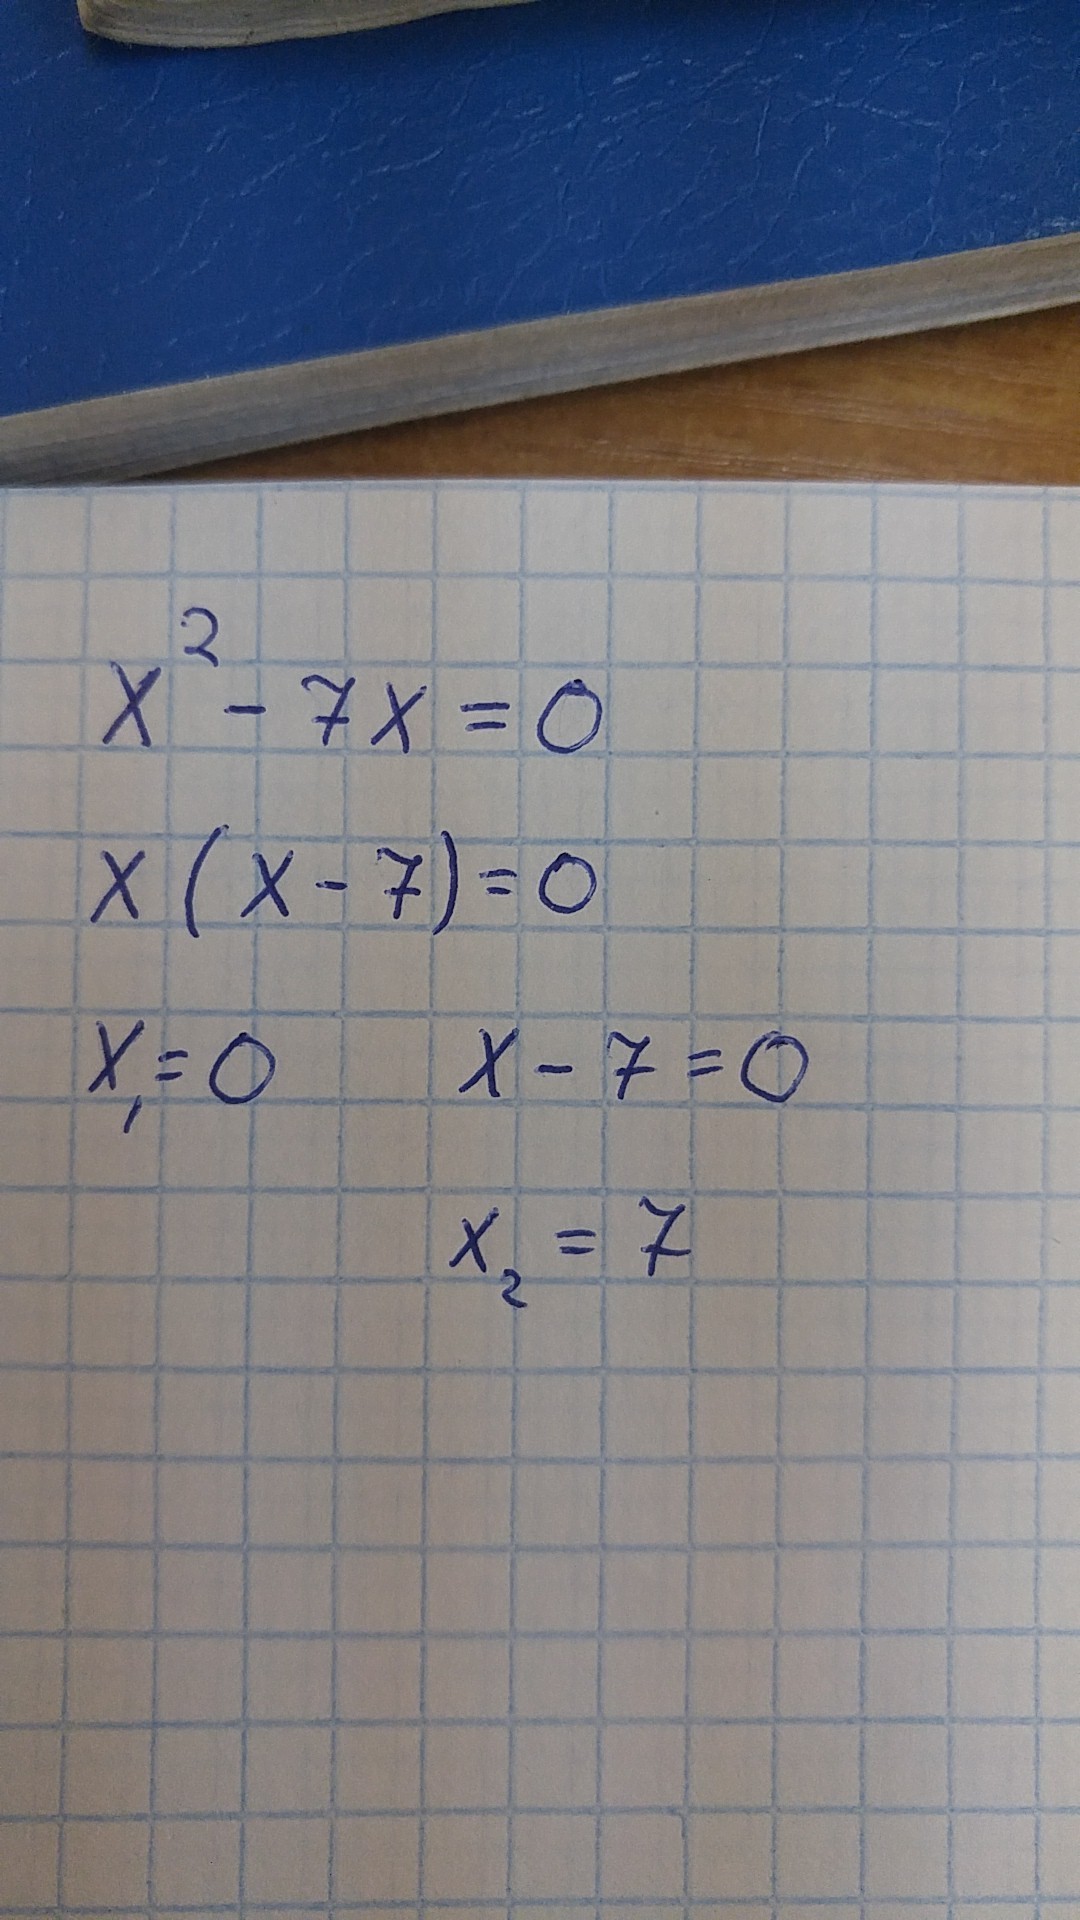 x² - 7x = 0
x(x - 7) = 0
x₁ = 0    x - 7 = 0
x₂ = 7